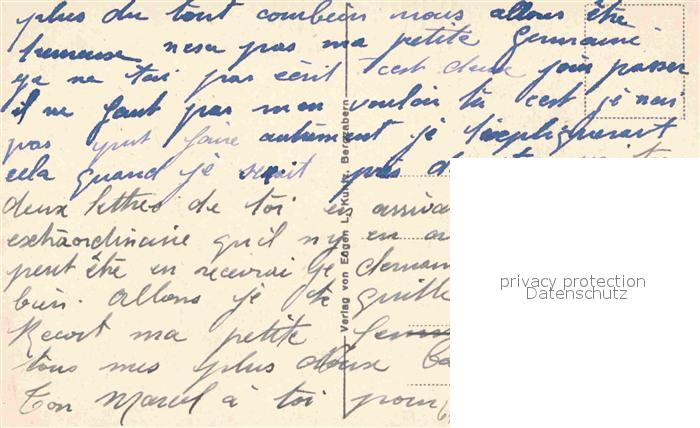 plus du tout combien nous allons être
heureuse nesu pas ma petite Germaine
ye ne tai pas écrit cest deux jour passer
il ne faut pas men vouloir tu cest je nai
pas peut faire autrement je texpliquerait
cela quand je serait près de
deux lettres de toi en
extraordinaire qu'il ny en a
peut être en recevrai je
bien. allons je te
Recoit ma petite
tous mes plus doux
Ton Marcel à toi pour
Verlag von Eugen L. Kuntz, Bergzabern
privacy protection
Datenschutz